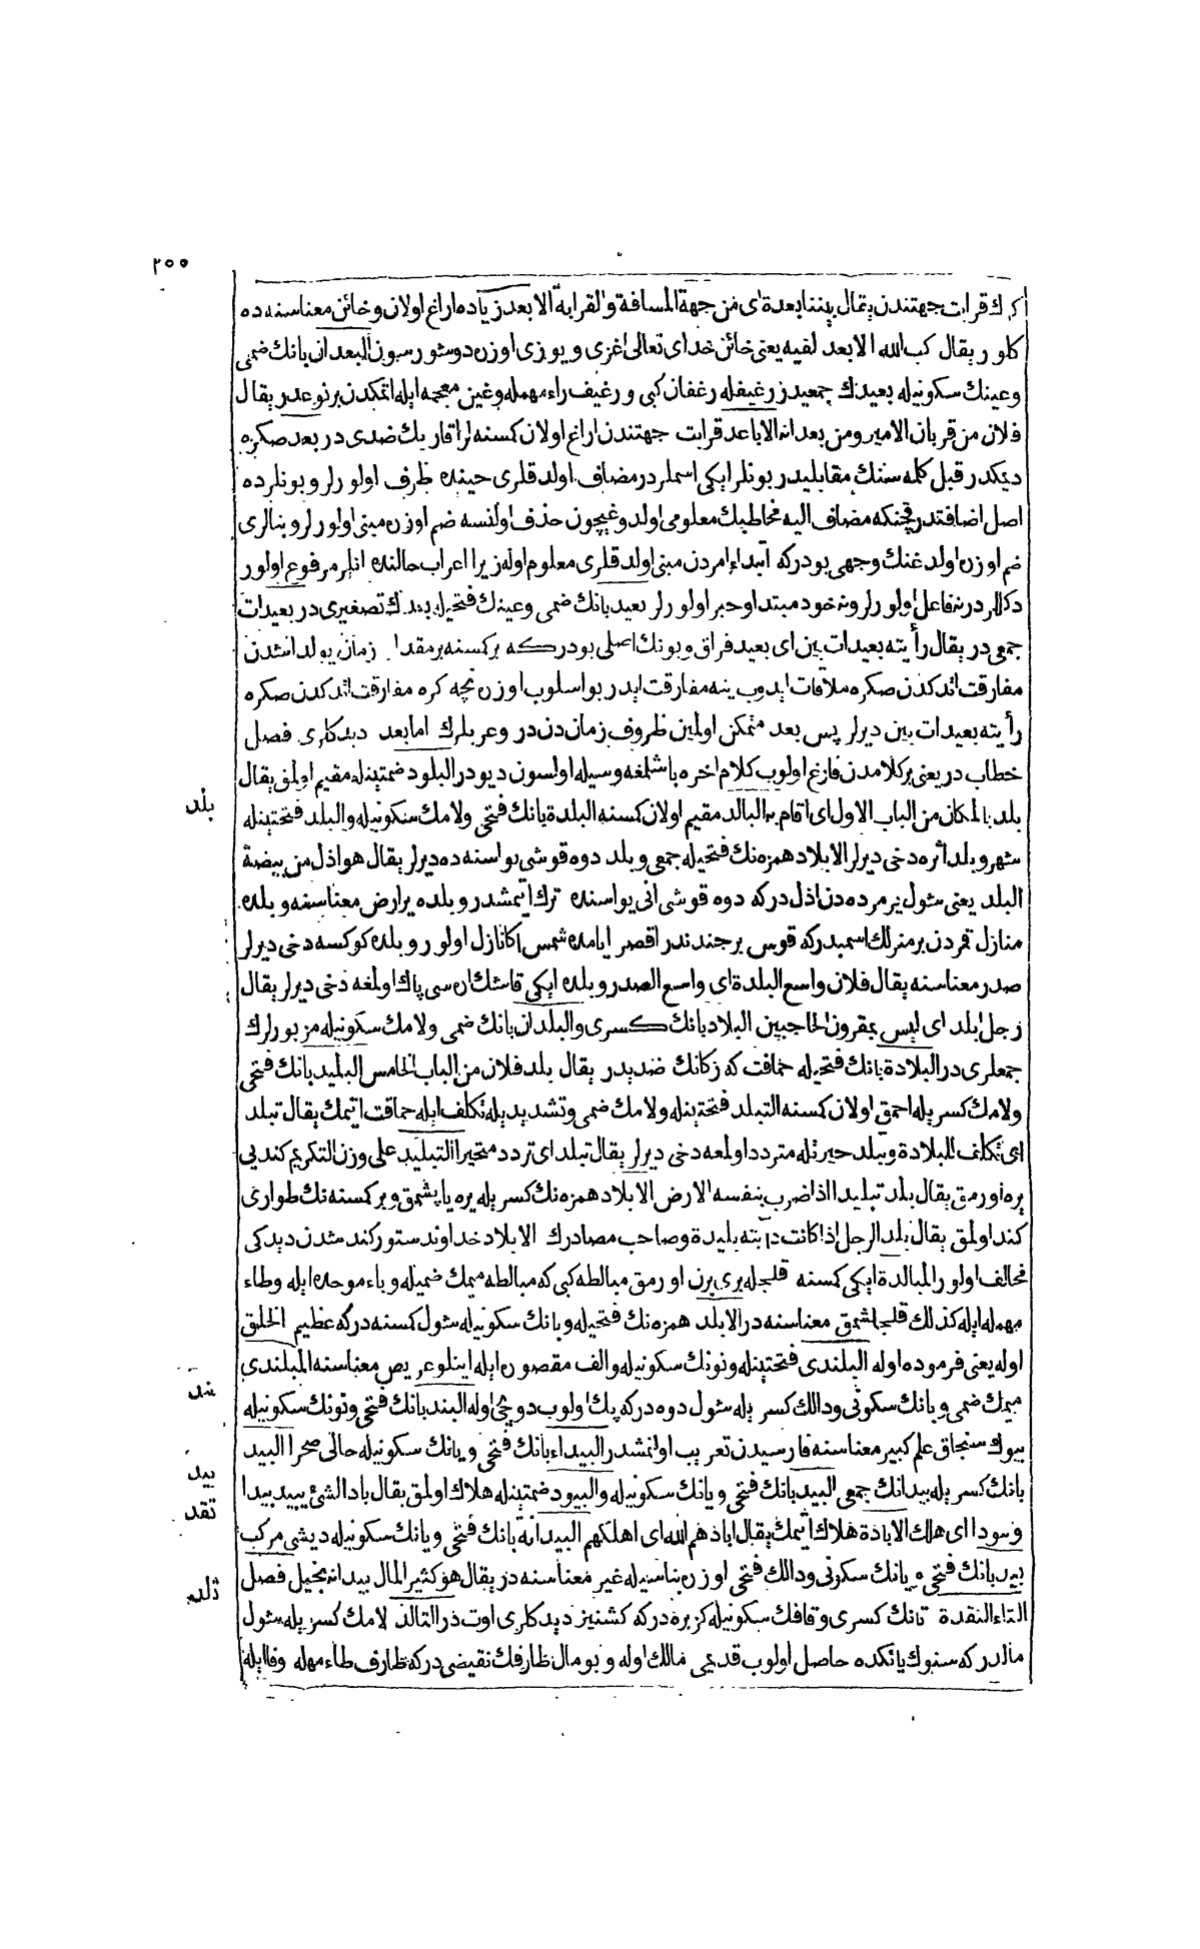 ٢٥٥
كرك قرابت جهتندن يقال بيننا بعدة اى من جهة المسافة والقرابة الابعد زياده اراغ اولان وخائن معناسنه ده
كلور يقال كب الله الابعد لفيه يعنى خائن خداى تعالى اغزى ويوزى اوزره دوشورسون البعدان بانك ضمى
وعينك سكونيله بعيدك جمعيدر رغيفله رغفان كبى ورغيف راء مهمله وغين معجمه ايله اتمكدن بر نوعدر يقال
فلان من قربان الامير ومن بعدانه الاباعد قرابت جهتندن اراغ اولان كسنه لر اقاربك ضدى در بعد صكره
ديمكدر قبل كلمه سنك مقابليدر بونلر ايكى اسملردر مضاف اولدقلرى حينده ظرف اولورلر وبونلرده
اصل اضافتدر قچنكه مضاف اليه مخاطبك معلومى اولدوغيچون حذف اولنسه ضم اوزره مبنى اولورلر وبنالرى
ضم اوزره اولدغنك وجهى بودركه ابتداء امردن مبنى اولدقلرى معلوم اوله زيرا اعراب حالنده انلر مرفوع اولور
دكللردر نه فاعل اولورلر ونه خود مبتدا وخبر اولورلر بعيد بانك ضمى وعينك فتحيله بعدك تصغيرى در بعيدات
جمعى در يقال رأيته بعيدات بين اى بعيد فراق وبونك اصلى بودركه بر كسنه بر مقدار زمان يولداشندن
مفارقت اتدكدن صكره ملاقات ايدوب ينه مفارقت ايدر بو اسلوب اوزره نچه كره مفارقت اتدكدن صكره
رأيته بعيدات بين ديرلر پس بعد متمكن اولمين ظروف زمان دن در وعربلرك اما بعد ديدكلرى فصل
خطاب در يعنى بر كلامدن فارغ اولوب كلام اخره باشلمغه وسيله اولسون ديو در البلود ضمتينله مقيم اولمق يقال
بلد
بلد بالمكان من الباب الاول اى اقام به البالد مقيم اولان كسنه البلدة بانك فتحى ولامك سكونيله والبلد فتحتينله
شهر وبلد اثره دخى ديرلر الابلاد همزه نك فتحيله جمعى وبلد دوه قوشى يواسنه ده ديرلر يقال هو اذل من بيضة
البلد يعنى شول يمرده دن اذل دركه دوه قوشى انى يواسنده ترك اتمشدر وبلده ير ارض معناسنه وبلده
منازل قمردن بر منزلك اسميدركه قوس برجندندر اقصر ايامده شمس اكا نازل اولور وبلده كوكسه دخى ديرلر
صدر معناسنه يقال فلان واسع البلدة اى واسع الصدر وبلده ايكى قاشك اره سى پاك اولمغه دخى ديرلر يقال
رجل ابلد اى ليس بمقرون الحاجبين البلاد بانك كسرى والبلدان بانك ضمى ولامك سكونيله مزبورلرك
جمعلرى در البلادة بانك فتحيله حماقت كه زكانك ضديدر يقال بلد فلان من الباب الخامس البليد بانك فتحى
ولامك كسريله احمق اولان كسنه التبلد فتحتينله ولامك ضمى وتشديديله تكلف ايله حماقت اتمك يقال تبلد
اى تكلف البلادة وتبلد حيرتله متردد اولمغه دخى ديرلر يقال تبلد اى تردد متحيرا التبليد على وزن التكريم كنديى
يره اورمق يقال بلد تبليدا اذا ضرب بنفسه الارض الابلاد همزه نك كسريله يره ياپشمق وبر كسنه نك طوارى
كند اولمق يقال بلد الرجل اذا كانت دابته بليدة وصاحب مصادرك الابلاد خداوند ستور كند شدن ديدكى
مخالف اولور المبالدة ايكى كسنه قلجله برى برن اورمق مبالطه كبى كه مبالطه ميمك ضميله وباء موحده ايله وطاء
مهمله ايله كذلك قلجلشمق معناسنه در الابلد همزه نك فتحيله وبانك سكونيله شول كسنه دركه عظيم الخلق
اوله يعنى فرموده اوله البلندى فتحتينله ونونك سكونيله والف مقصوره ايله اينلو عريض معناسنه المبلندى
بند
ميمك ضمى وبانك سكونى ودالك كسريله شول دوه دركه پك اولوب دوچى اوله البند بانك فتحى ونونك سكونيله
بيوك سنجاق علم كبير معناسنه فارسيدن تعريب اولنمشدر البيداء بانك فتحى ويانك سكونيله خالى صحرا البيد
بيد
بانك كسريله بيدانك جمعى البيد بانك فتحى ويانك سكونيله والبيود ضمتينله هلاك اولمق يقال باد الشئ يبيد بيدا
تقد
وبيودا اى هلك الابادة هلاك اتمك يقال اباذهم الله اى اهلكهم البيدانة بانك فتحى ويانك سكونيله ديشى مركب
بيد بانك فتحى ويانك سكونى ودالك فتحى اوزره بناسيله غير معناسنه در يقال هو كثير المال بيد انه بخيل فصل
تلد
التاء التقدة تانك كسرى وقافك سكونيله كزبره دركه كشنيز ديدكلرى اوتدر التالد لامك كسريله شول
مالدركه سنوك يانكده حاصل اولوب قديمى مالك اوله وبو مال ظارفك نقيضى دركه ظارف طاء مهمله وفا ايله